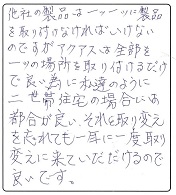 他社の製品は一ッ一ッに製品
を取り付けなければいけない
のですがアクアスは全部を
一ッの場所を取り付けるだけ
で良い為に私達のように
二世帯住宅の場合いは
都合が良い、それを取り変え
を忘れても一年に一度取り
変えに来ていただけるので
良いです。